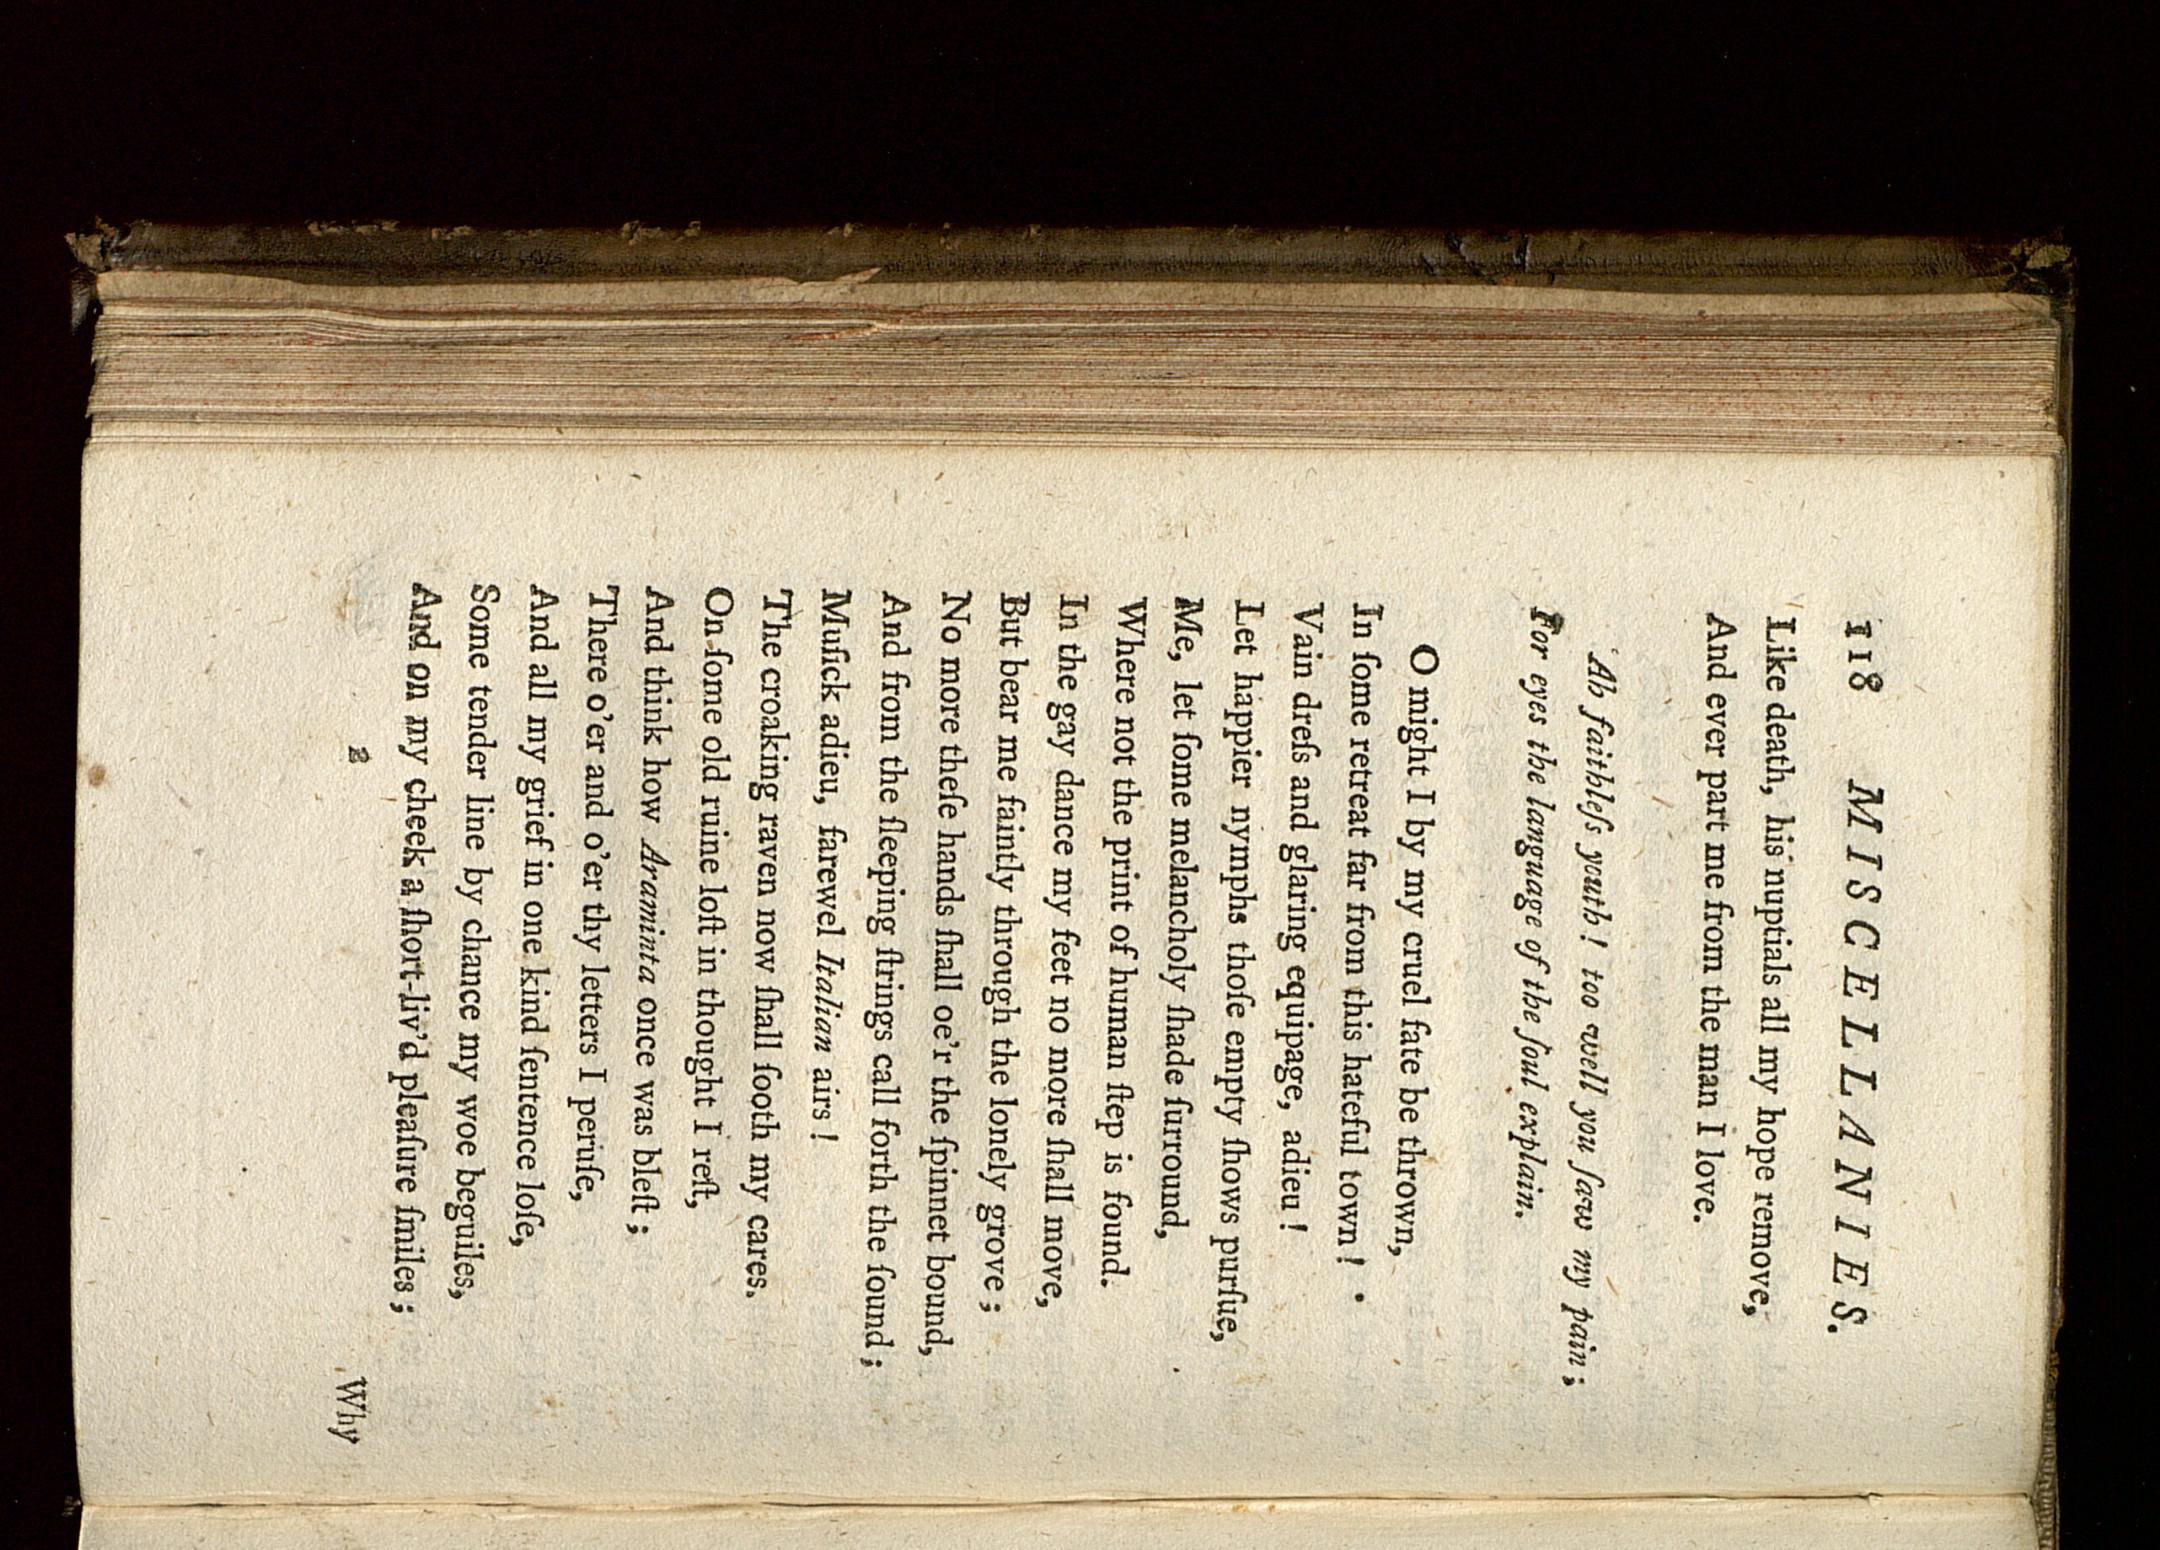 118 MISCELLANIES.
Like death, his nuptials all my hope remove,
And ever part me from the man I love.
Ah faithleſs youth! too well you ſaw my pain;
For eyes the language of the ſoul explain.
O might I by my cruel fate be thrown,
In ſome retreat far from this hateful town!
Vain dreſs and glaring equipage, adieu!
Let happier nymphs thoſe empty ſhows purſue,
Me, let ſome melancholy ſhade ſurround,
Where not the print of human ſtep is found.
In the gay dance my feet no more ſhall move,
But bear me faintly through the lonely grove;
No more theſe hands ſhall oe'r the ſpinnet bound,
And from the ſleeping ſtrings call forth the ſound;
Muſick adieu, farewel Italian airs!
The croaking raven now ſhall ſooth my cares.
On ſome old ruine loſt in thought I reſt,
And think how Araminta once was bleſt;
There o'er and o'er thy letters I peruſe,
And all my grief in one kind ſentence loſe,
Some tender line by chance my woe beguiles,
And on my cheek a ſhort-liv'd pleaſure ſmiles;
2 Why